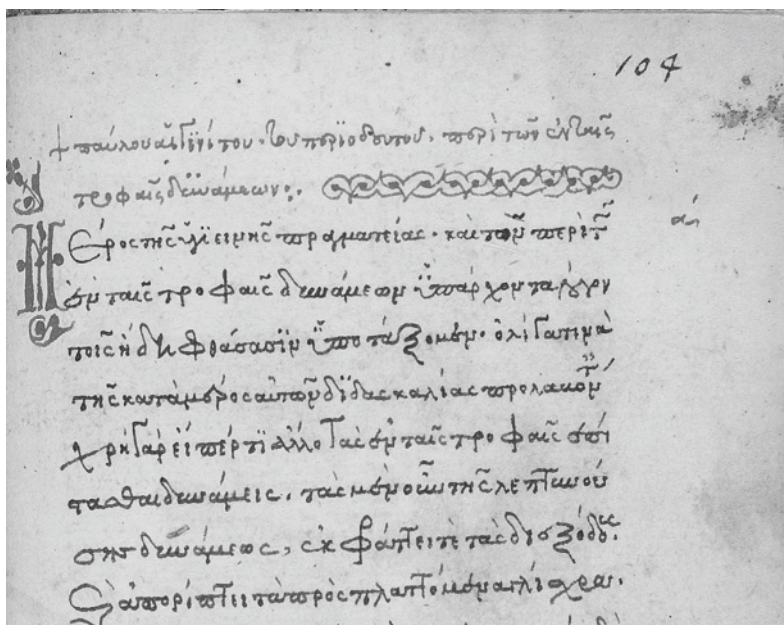 104
+ παύλου αἰγινίτου τοῦ περιοδευτοῦ· περὶ τῶν ἐν ταῖς
τροφαῖς δυνάμεων:·
Μέρος τῆς ὑγιεινῆς πραγματείας· καὶ τὸν περὶ τ
ἐν ταῖς τροφαῖς δυνάμεων ὑπάρχοντα λόγον
τοῖς ἤδη φθάσασϊν ὑποτάξομεν· ὀλίγα τινὰ
τῆς κατὰ μέρος αὐτῶν διδασκαλίας προλαβόντ
χρὴ γὰρ εἴπέρ τι ἄλλο τὰς ἐν ταῖς τροφαῖς ἐπί
τασθαι δυνάμεις· τὰς μὲν οὖν τῆς λεπτυνού
σης δυνάμεως, ἐκφράττει τὲ τὰς διεξόδους·
ἀπορίπτει τὰ προσπλαττόμενα γλίχρα·